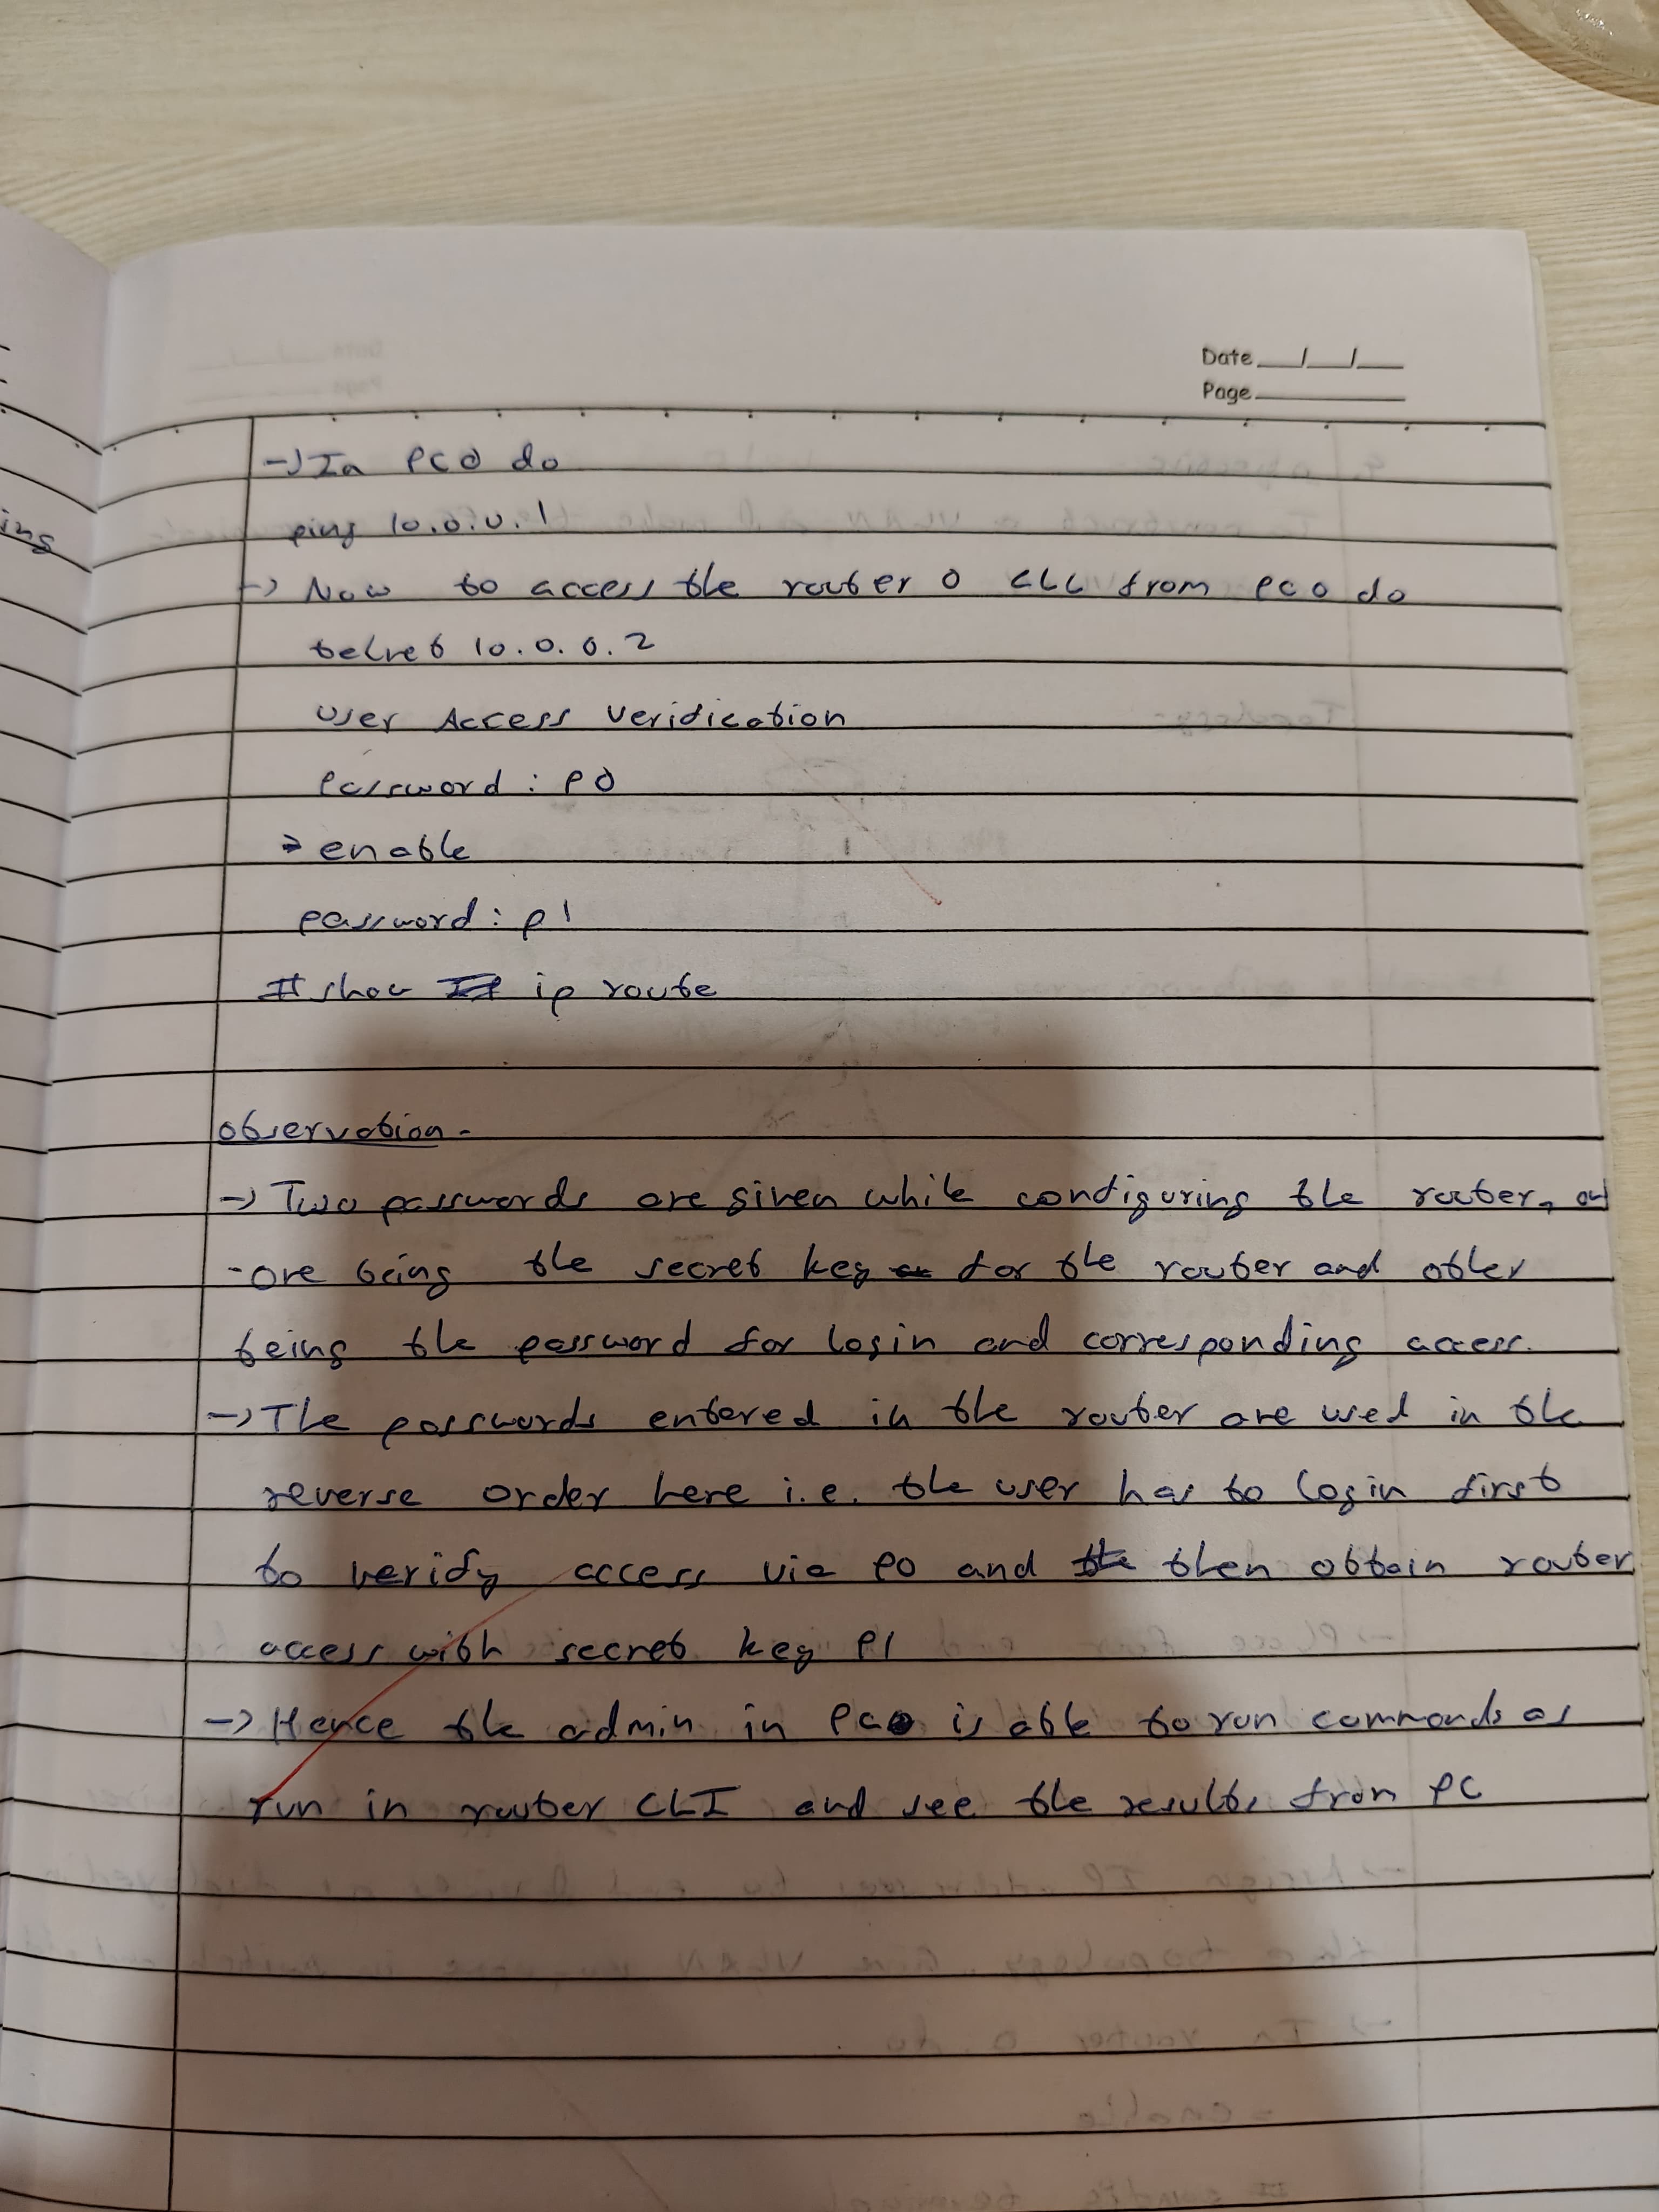 Date __/__/__
Page ______
ing
→ In PC0 do
ping 10.0.0.1
→ Now to access the router 0 CLI from PC0 do
telnet 10.0.0.2
User Access Verification
Password : P0
> enable
password : p1
# show ip route
Observation -
→ Two passwords are given while configuring the router,
- one being the secret key for the router and other
being the password for login and corresponding access.
→ The passwords entered in the router are used in the
reverse order here i.e. the user has to login first
to verify access via P0 and then obtain router
access with secret key P1
→ Hence the admin in PC0 is able to run commands as
run in router CLI and see the results from PC